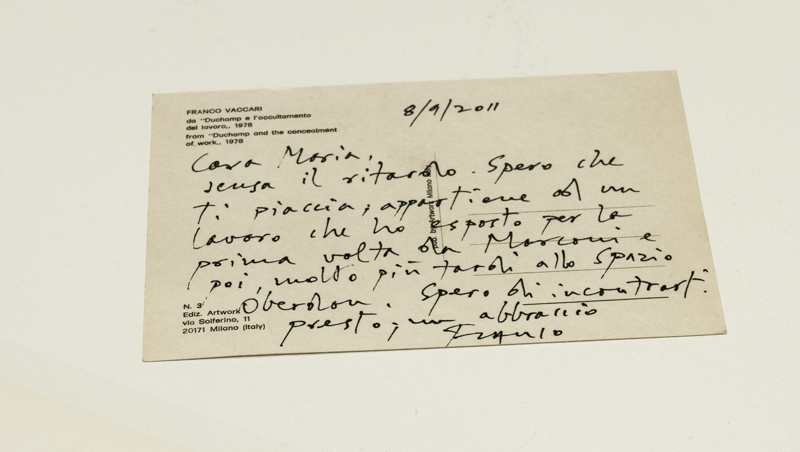 FRANCO VACCARI
da "Duchamp e l'occultamento
del lavoro,, 1978
from "Duchamp and the concealment
of work,, 1978
8/9/2011
Cara Maria,
scusa il ritardo. Spero che
ti piaccia; appartiene ad un
lavoro che ho esposto per la
prima volta da Marconi e
poi, molto più tardi allo Spazio
Oberdan. Spero di incontrarti
presto; un abbraccio
Franco
N. 3
Ediz. Artwork
via Solferino, 11
20171 Milano (Italy)
by Artwork Milano